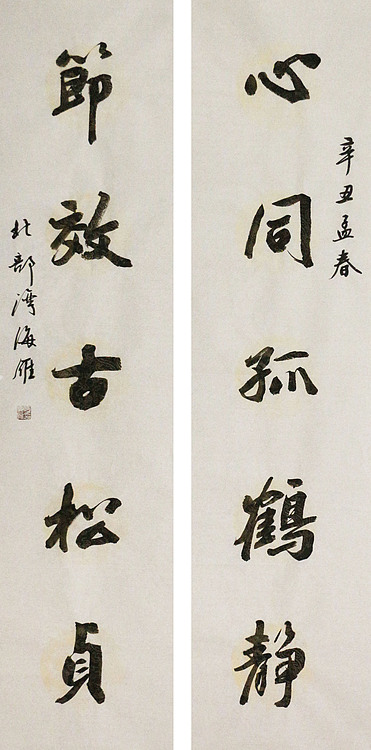 辛丑孟春
心同孤鶴靜
節效古松貞
北部湾海雁